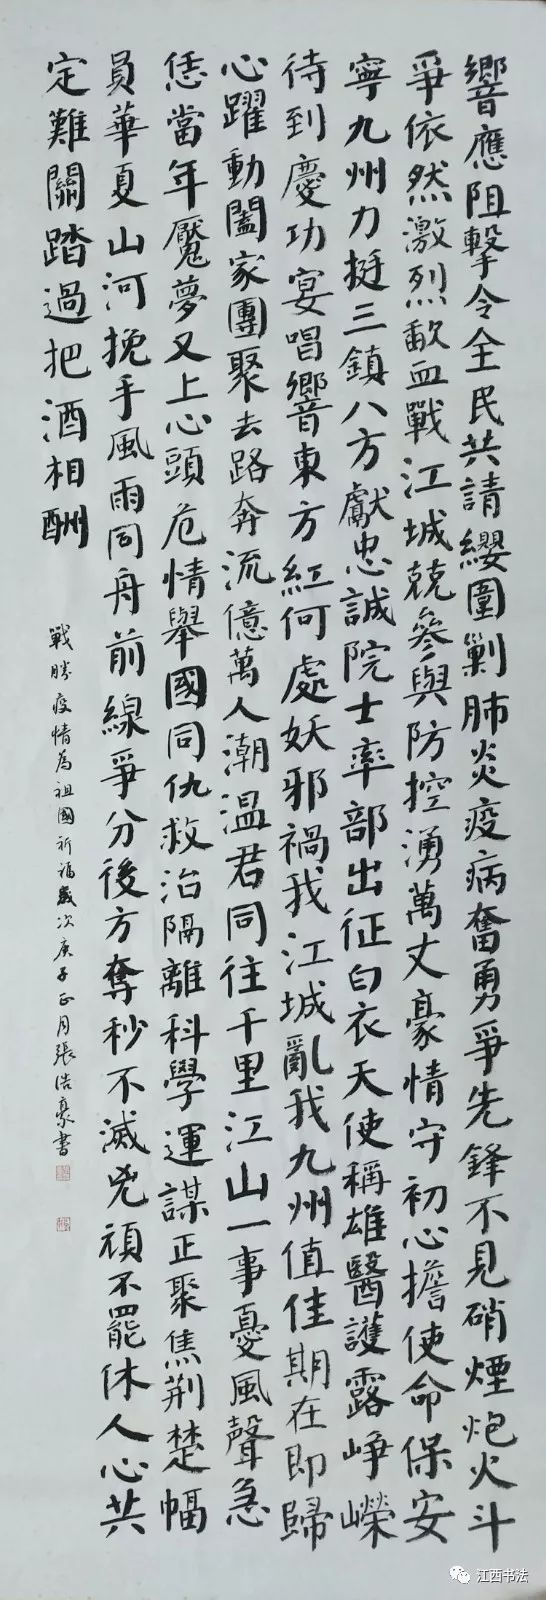 響應阻擊令全民共請纓圍剿肺炎疫病奮勇爭先鋒不見硝煙炮火斗
爭依然激烈歃血戰江城競參與防控湧萬丈豪情守初心擔使命保安
寧九州力挺三鎮八方獻忠誠院士率部出征白衣天使稱雄醫護露崢嶸
待到慶功宴唱響東方紅何處妖邪禍我江城亂我九州值佳期在即歸
心躍動闔家團聚去路奔流億萬人潮溫君同往千里江山一事憂風聲急
恁當年魘夢又上心頭危情舉國同仇救治隔離科學運謀正聚焦荊楚幅
員華夏山河挽手風雨同舟前線爭分後方奪秒不滅兇頑不罷休人心共
定難關踏過把酒相酬
戰勝疫情為祖國祈福歲次庚子正月張浩豪書
江西书法